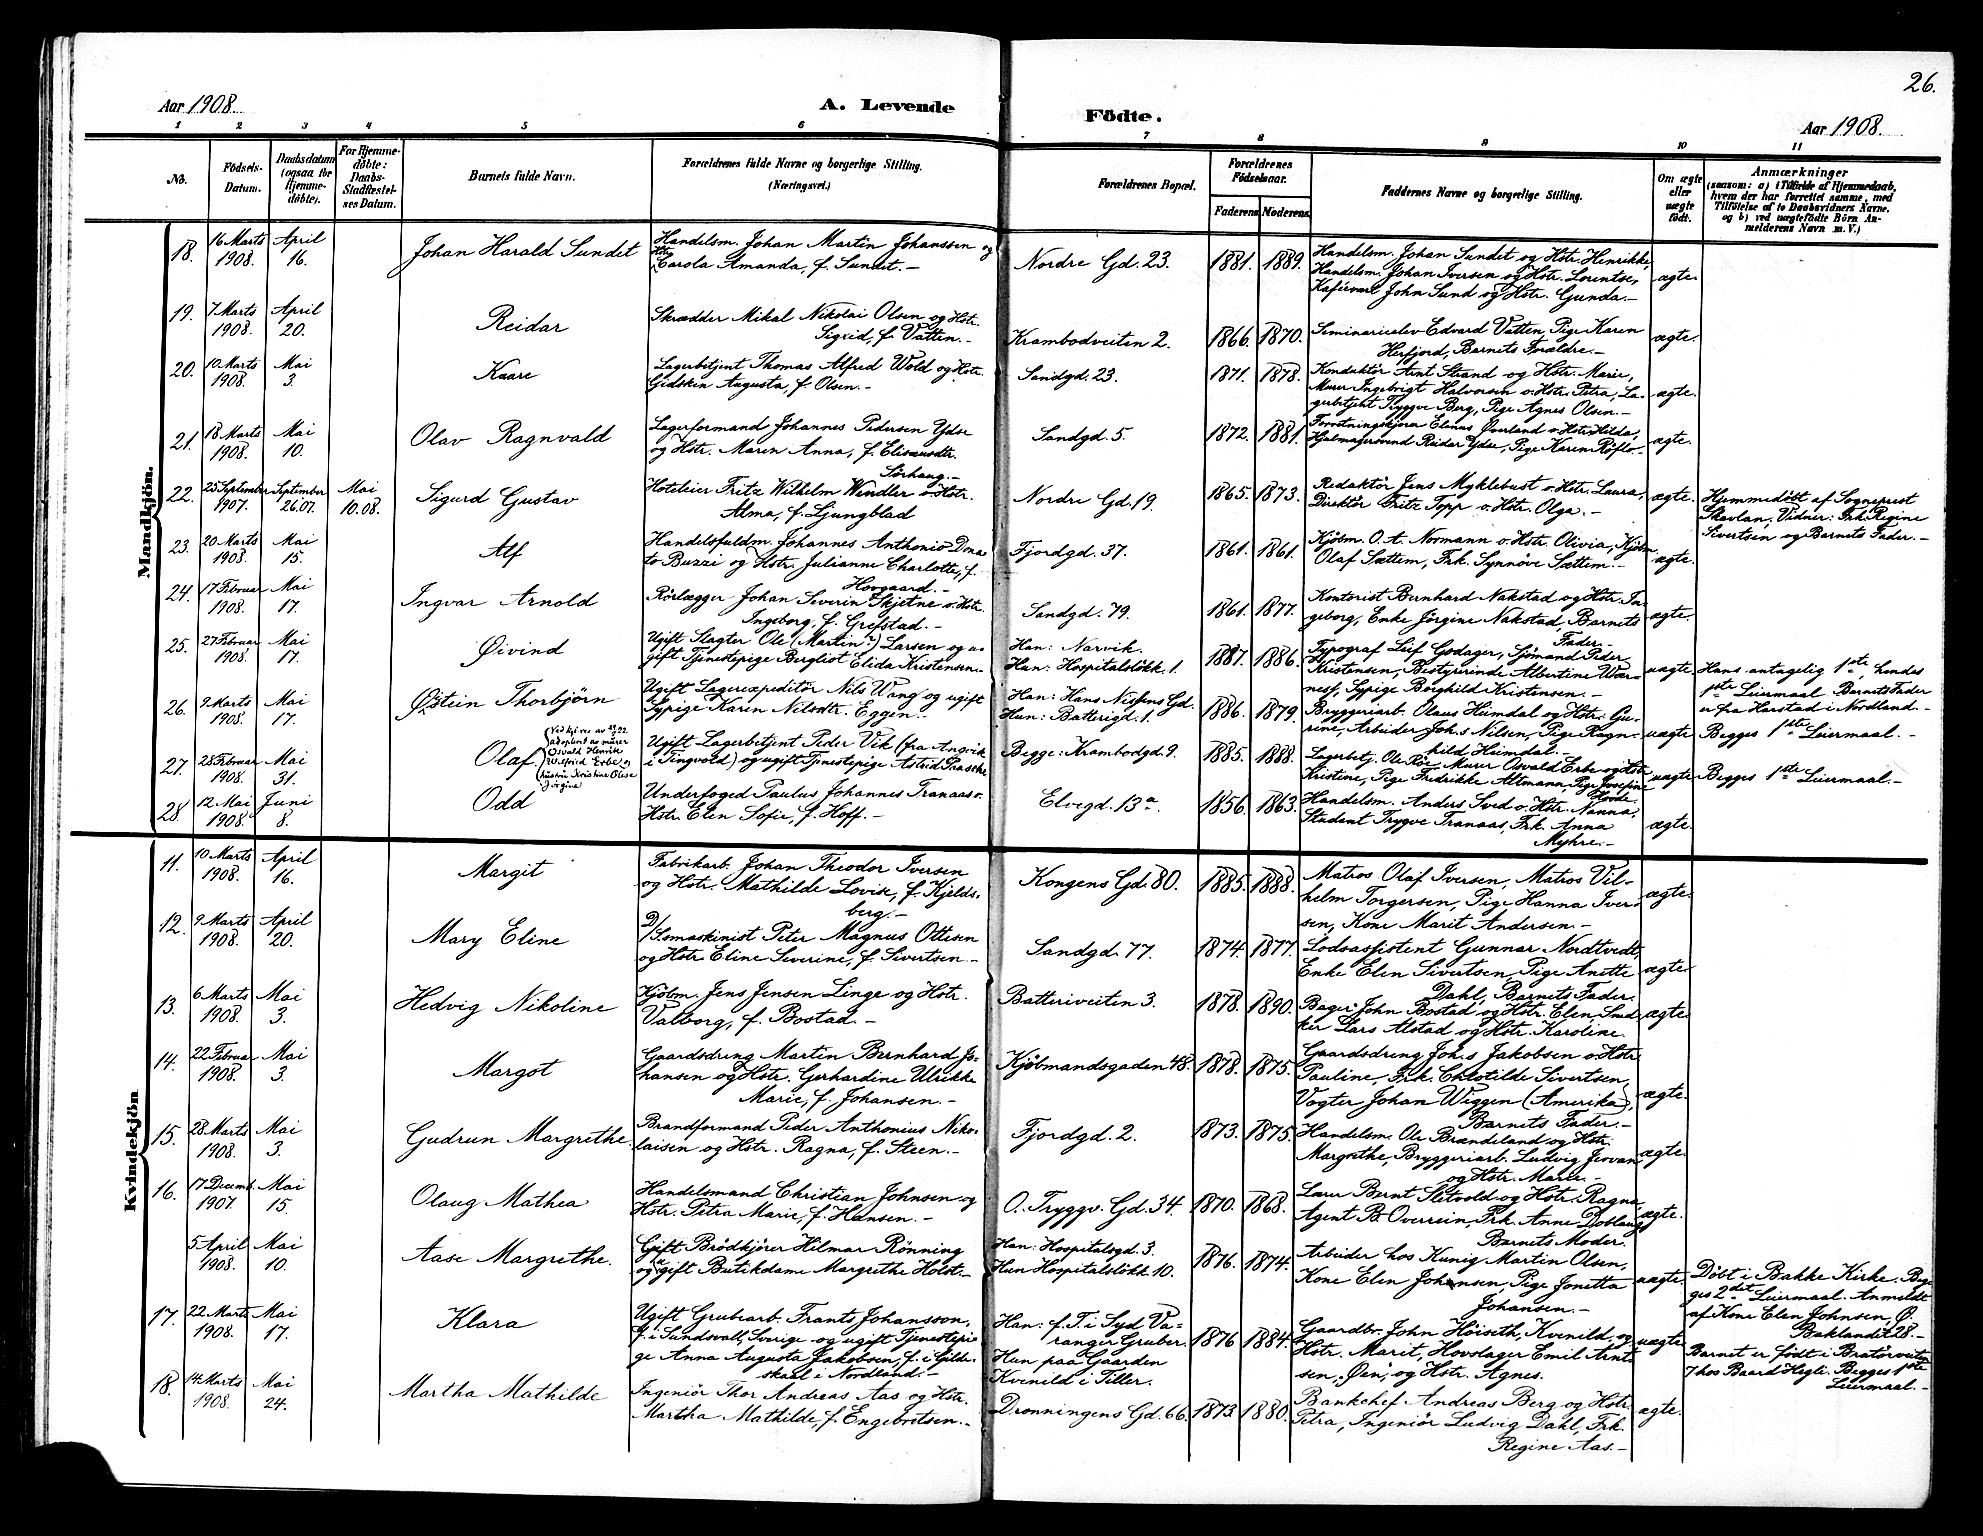 26.
Aar 1908. A. Levende Fødte. Aar 1908.
1 2 3 4 5 6 7 8 9 10 11
No. Födsels-Datum. Daabsdatum (ogsaa for Hjemme-døbte). For Hjemme-døbte: Daabs-Stadfæstel-ses Datum. Barnets fulde Navn. Forældrenes fulde Navne og borgerlige Stilling. (Næringsvei.) Forældrenes Bopæl. Forældrenes Födselsaar. Faderens. Moderens. Faddernes Navne og borgerlige Stilling. Om ægte eller uægte født. Anmærkninger (saasom: a) i Tilfælde af Hjemmedaab, hvem der har forrettet samme, med Tilføielse af to Daabsvidners Navne, og b) ved uægtefødte Børn An-melderens Navn m. V.)
Mandkjön.
18. 16 Marts 1908. April 16. Johan Harald Sundet Handelsm. Johan Martin Johanssen og Hstr. Carola Amanda, f. Sundet.- Nordre Gd. 23. 1881. 1889. Handelsm. Johan Sundet og Hstr. Henrikke, Handelsm. Johan Iversen og Hstr. Lorentse, Kafévært John Sund og Hstr. Gunda.- ægte.
19. 7 Marts 1908. April 20. Reidar Skrædder Mikal Nikolai Olsen og Hstr. Sigrid, f. Vatten.- Krambodveiten 2. 1866. 1870. Seminarieelev Edvard Vatten, Pige Karen Herfjord, Barnets Forældre.- ægte.
20. 10 Marts 1908. Mai 3. Kaare Lagerbetjent Thomas Alfred Wold og Hstr. Gidskin Augusta, f. Olsen.- Sandgd. 23. 1871. 1878. Konduktør Arnt Strand og Hstr. Marie, Murer Ingebrigt Halvorsen o. Hstr. Petra, La-gerbetjent Tryggve Berg, Pige Agnes Olsen.- ægte.
21. 18 Marts 1908. Mai 10. Olav Ragnvald Lagerformand Johannes Pedersen Ydse og Hstr. Maren Anna, f. Elisæusdtr. Sörhaug.- Sandgd. 5. 1872. 1881. Elinus Øverland o. Hstr. Hilda, Hjalmagersvend Reidar Ydse, Pige Karen Röflo.- ægte.
22. 25 September 1907. September 26.07. Mai 10.08. Sigurd Gustav Hoteleier Fritz Wilhelm Wendler o. Hstr. Alma, f. Ljungblad Nordre Gd. 19. 1865. 1873. Redaktør Jens Myklebust o. Hstr. Laura, Direktör Fritz Topp o. Hstr. Olga.- ægte. Hjemmedöbt af Sogneprest Skavlan. Vidner: Frk. Regine Sivertsen og Barnets Fader.-
23. 20 Marts 1908. Mai 15. Alf Handelsfuldm. Johannes Anthonio Dona-to Buzzi og Hstr. Julianne Charlotte, f. Hovgaard.- Fjordgd. 37. 1861. 1861. Kjöbm. O. A. Normann o. Hstr. Olivia, Kjöbm. Olaf Sættem, Frk. Synnöve Sættem.- ægte.
24. 17 Februar 1908. Mai 17. Ingvar Arnold Rörlægger Johan Severin Skjetne o. Hstr. Ingeborg, f. Grefstad.- Sandgd. 79. 1861. 1877. Kontorist Bernhard Nakstad og Hstr. In-geborg, Enke Jörgine Nakstad, Barnets Fader. ægte.
25. 27 Februar 1908. Mai 17. Øivind Ugift Slagter Ole (Martin?) Larsen og u-gift Tjenestepige Bergliot Elida Kristensen.- Han: Narvik. Hun: Hospitalslökk. 1. 1887. 1886. Typograf Leif Godager, Sjömand Peder Kristensen, Bestyrerinde Albertine Wær-ness, Sypige Borghild Kristensen.- uægte Hans antagelig 1ste, hendes 1ste Leiermaal. Barnets Fader er fra Harstad i Nordland.-
26. 9 Marts 1908. Mai 17. Østein Thorbjörn Ugift Lagerexpeditör Nils Wang og ugift Sypige Karen Nilsdtr. Eggen.- Han: Hans Nissens Gd. Hun: Batterigd. 1. 1886. 1879. Bryggeriarb. Olaus Heimdal og Hstr. Gu-rine, Arbeider Joh.s Nilsen, Pige Ragn-hild Heimdal.- uægte Begges 1ste Leiermaal.-
27. 28 Februar 1908. Mai 31. Olaf. (Ved kgl. res. av 22 adoptert av murer Osvald Henrik Wilfred Erbe og hustru Kristine Olise Jörgine) Ugift Lagerbetjent Peder Vik (fra Angvik i Tingvold) og ugift Tjenestepige Astrid Paasche Begge: Krambodgd. 9. 1885. 1888. Lagerbetj. Ole Röe, Murer Osvald Erbe og Hstr. Kristine, Pige Fredrikke Altmann, Pige Josefine uægte Begges 1ste Leiermaal.-
28. 12 Mai 1908. Juni 8. Odd Underfoged Paulus Johannes Tranaas o. Hstr. Elen Sofie, f. Hoff.- Elvegd. 13a. 1856. 1863. Handelsm. Anders Sved o. Hstr. Nanna, Student Trygve Tranaas, Frk. Anna Myhre.- ægte.
Kvindekjön
11. 10 Marts 1908. April 16. Margit Fabrikarb. Johan Theodor Iversen og Hstr. Mathilde Lovise, f. Kjelds-berg.- Kongens Gd. 80. 1885. 1888. Matros Olaf Iversen, Matros Vil-helm Torgersen, Pige Hanna Iver-sen, Kone Marit Andersen.- ægte.
12. 9 Marts 1908. April 20. Mary Eline D/Somaskinist Peter Magnus Ottesen og Hstr. Eline Severine, f. Sivertsen.- Sandgd. 77. 1874. 1877. Lodsassistent Gunnar Nordtvedt, Enke Elen Sivertsen, Pige Anette Dahl, Barnets Fader. ægte.
13. 6 Marts 1908. Mai 3. Hedvig Nikoline Kjöbm. Jens Jensen Linge og Hstr. Valborg, f. Bostad.- Batteriveiten 3. 1878. 1890. Bager John Bostad og Hstr. Elen, Sned-ker Lars Alstad og Hstr. Karoline ægte.
14. 22 Februar 1908. Mai 3. Margot Gaardsdreng Martin Bernhard Jo-hansen og Hstr. Gerhardine Ulrikke Marie, f. Johansen.- Kjöbmandsgaden 48. 1878. 1875. Gaardsdreng Joh.s Jakobsen o. Hstr. Pauline, Frk. Chlotilde Sivertsen, Vogter Johan Wiggen (Amerika), Barnets Fader.- ægte.
15. 28 Marts 1908. Mai 3. Gudrun Margrethe Brandformand Peder Anthonius Niko-laisen og Hstr. Ragna, f. Steen.- Fjordgd. 2. 1873. 1875. Handelsm. Ole Brændeland og Hstr. Margrethe, Bryggeriarb. Ludvig Jervan og Hstr. Marie.- ægte.
16. 17 Decemb. 1907. Mai 15. Olaug Mathea Handelsmand Christian Johnsen og Hstr. Petra Marie, f. Hansen.- O. Tryggv. Gd. 34. 1870. 1868. Lærer Bernt Sletvold og Hstr. Ragna, Agent B. Overrein, Frk. Anne Doblaug, Barnets Moder. ægte.
5 April 1908. Mai 10. Aase Margrethe. Gift Brödkjörer Hilmar Rönning og ugift Butikdame Margrethe Holst.- Han: Hospitalsgd. 3. Hun Hospitalslökk. 10. 1876. 1874. Arbeider hos Kunig Martin Olsen, Kone Elen Johnsen, Pige Jonetta Johansen.- uægte Döbt i Bakke Kirke. Beg-ges 2det Leiermaal. Anmeldt af Kone Elen Johnsen, Ø. Baklandet 28.-
17. 22 Marts 1908. Mai 17. Klara Ugift Grubearb. Frants Johansson, f. i Sundsvall, Sverige og ugift Tjenestepi-ge Anna Augusta Jakobsen, f. i Gilde-skaal i Nordland.- Han: f. T. i Syd Va-ranger Gruber. Hun paa Gaarden Kvenild i Tiller. 1876 1884. Gaardbr. John Höiseth, Kvenild, og Hstr. Marit, Hovslager Emil Arnt-sen, Øen, og Hstr. Agnes. uægte Barnet er födt i Bratörveiten 7 hos Baard Hegle. Begges 1ste Leiermaal.-
18. 14 Marts 1908. Mai 24. Martha Mathilde Ingeniör Thor Andreas Aas og Hstr. Martha Mathilde, f. Engebretsen.- Dronningens Gd. 66. 1873. 1880. Bankchef Andreas Berg og Hstr. Petra, Ingeniör Ludvig Dahl, Frk. Regine Aas.- ægte.